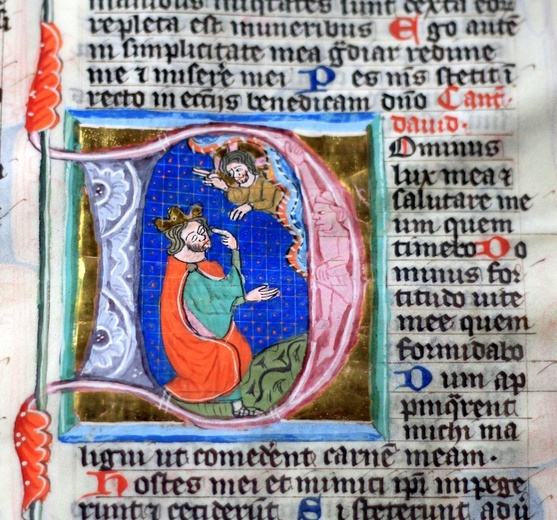 manibus iniquitates sunt dextra eoꝝ
repleta est muneribus Ego autē
in simplicitate mea ḡdiar redime
me ⁊ misere mei Pes m̄s stetit ī
recto in ecciis benedicam dn̄o Cant.
dauid.
Dominus
lux mea ⁊
salutare me
um quem
timebo Do
minus for
titudo uite
mee quem
formidabo
Dum ap
pinq̄rent
michi ma
ligni ut comedent carnē meam.
Hostes mei et inimici ip̄i impege
runt ⁊ ceciderūt Si steterunt adū